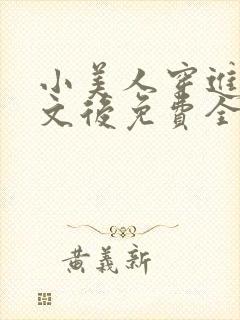 小美人穿進
文後免費全
黃義新